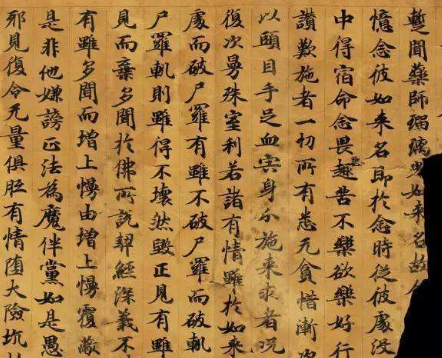 暫聞藥師瑠璃光如来名故
憶念彼如来名即於念時從彼處沒
中得宿命念畏趣苦不樂欲樂好行
讚歎施者一切所有悉无貪惜漸
以頭目手足血宍身分施来求者况
復次曼殊室利若諸有情雖於如来
處而破尸羅有雖不破尸羅而破軌
尸羅軌則雖得不壞然毀正見有雖
見而棄多聞於佛所說契經深義不
有雖多聞而增上慢由增上慢覆蔽
是非他嫌謗正法為魔伴黨如是愚
邪見復令无量俱胝有情墮大險坑